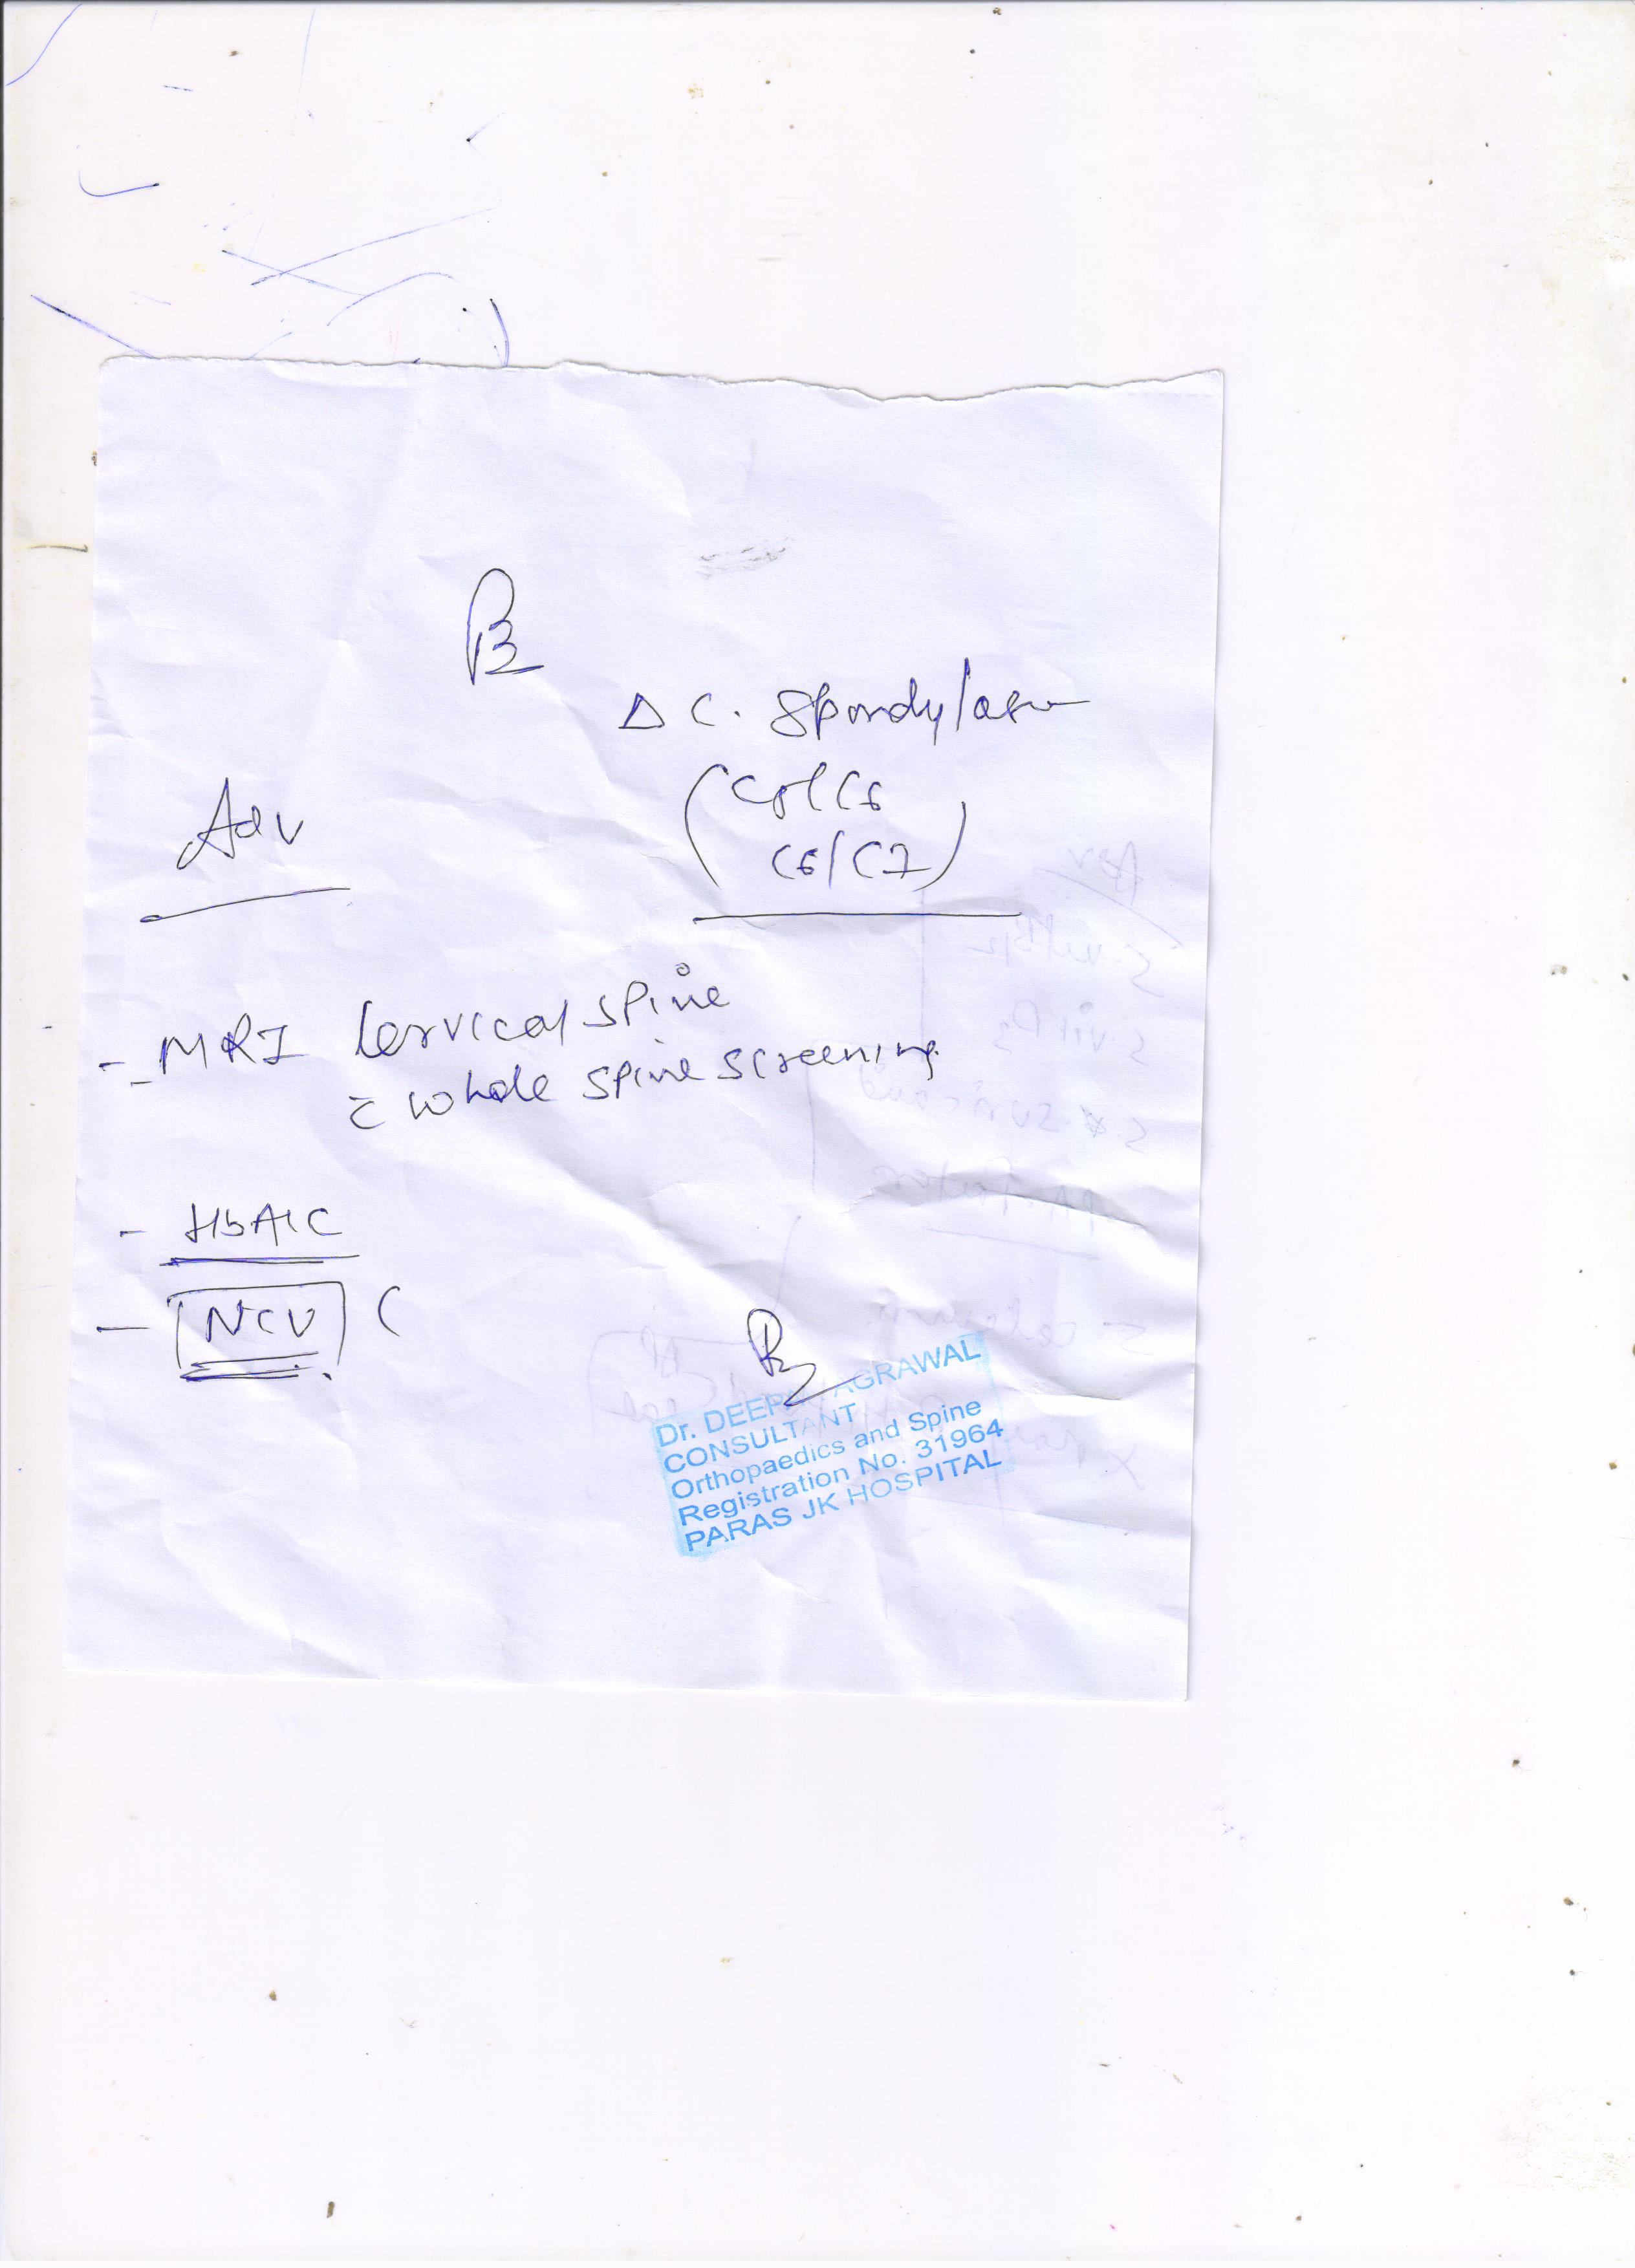 Rx
Δ C. Spondylosis
(C5/C6
C6/C7)
Adv
- MRI Cervical spine
c̄ whole spine screening
- HbA1C
- NCV (
Dr. DEEP AGRAWAL
CONSULTANT
Orthopaedics and Spine
Registration No. 31964
PARAS JK HOSPITAL